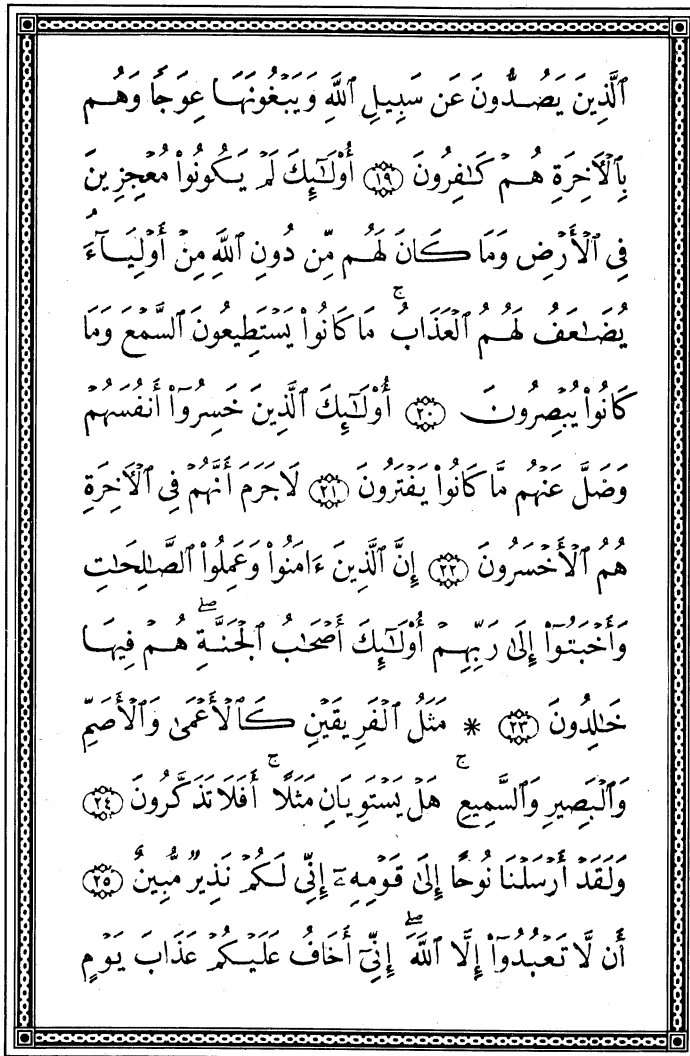 ٱلَّذِينَ يَصُدُّونَ عَن سَبِيلِ ٱللَّهِ وَيَبْغُونَهَا عِوَجًا وَهُم
بِٱلْأَخِرَةِ هُمْ كَٰفِرُونَ ١٩ أُو۟لَٰٓئِكَ لَمْ يَكُونُوا۟ مُعْجِزِينَ
فِى ٱلْأَرْضِ وَمَا كَانَ لَهُم مِّن دُونِ ٱللَّهِ مِنْ أَوْلِيَآءَ
يُضَٰعَفُ لَهُمُ ٱلْعَذَابُ ۚ مَا كَانُوا۟ يَسْتَطِيعُونَ ٱلسَّمْعَ وَمَا
كَانُوا۟ يُبْصِرُونَ ٢٠ أُو۟لَٰٓئِكَ ٱلَّذِينَ خَسِرُوٓا۟ أَنفُسَهُمْ
وَضَلَّ عَنْهُم مَّا كَانُوا۟ يَفْتَرُونَ ٢١ لَا جَرَمَ أَنَّهُمْ فِى ٱلْأَخِرَةِ
هُمُ ٱلْأَخْسَرُونَ ٢٢ إِنَّ ٱلَّذِينَ ءَامَنُوا۟ وَعَمِلُوا۟ ٱلصَّٰلِحَٰتِ
وَأَخْبَتُوٓا۟ إِلَىٰ رَبِّهِمْ أُو۟لَٰٓئِكَ أَصْحَٰبُ ٱلْجَنَّةِ ۖ هُمْ فِيهَا
خَٰلِدُونَ ٢٣ * مَثَلُ ٱلْفَرِيقَيْنِ كَٱلْأَعْمَىٰ وَٱلْأَصَمِّ
وَٱلْبَصِيرِ وَٱلسَّمِيعِ ۚ هَلْ يَسْتَوِيَانِ مَثَلًا ۚ أَفَلَا تَذَكَّرُونَ ٢٤
وَلَقَدْ أَرْسَلْنَا نُوحًا إِلَىٰ قَوْمِهِۦٓ إِنِّى لَكُمْ نَذِيرٌ مُّبِينٌ ٢٥
أَن لَّا تَعْبُدُوٓا۟ إِلَّا ٱللَّهَ ۖ إِنِّىٓ أَخَافُ عَلَيْكُمْ عَذَابَ يَوْمٍ